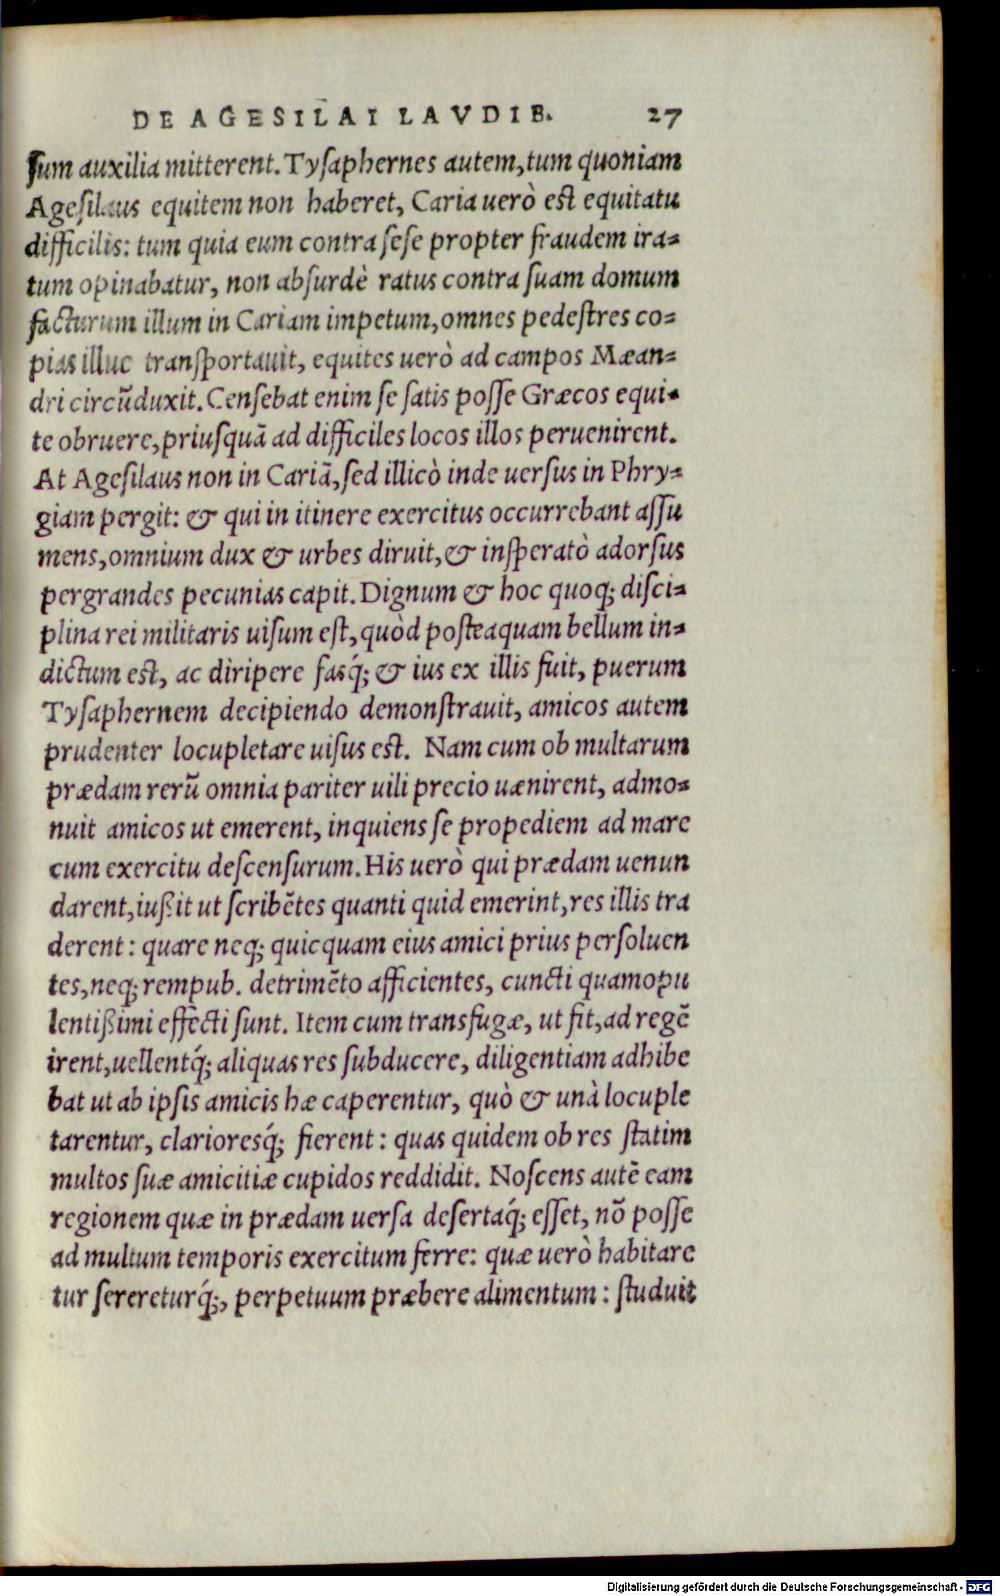 DE AGESILAI LAVDIB. 27
ſum auxilia mitterent. Tyſaphernes autem, tum quoniam
Ageſilaus equitem non haberet, Caria uerò eſt equitatu
difficilis: tum quia eum contra ſeſe propter fraudem ira-
tum opinabatur, non abſurdè ratus contra ſuam domum
facturum illum in Cariam impetum, omnes pedeſtres co-
pias illuc tranſportauit, equites uerò ad campos Mæan-
dri circũduxit. Cenſebat enim ſe ſatis poſſe Græcos equi-
te obruere, priuſquã ad difficiles locos illos peruenirent.
At Ageſilaus non in Cariã, ſed illicò inde uerſus in Phry-
giam pergit: & qui in itinere exercitus occurrebant aſſu
mens, omnium dux & urbes diruit, & inſperatò adorſus
pergrandes pecunias capit. Dignum & hoc quoq; diſci-
plina rei militaris uiſum eſt, quòd poſteaquam bellum in-
dictum eſt, ac diripere faſq́; & ius ex illis fuit, puerum
Tyſaphernem decipiendo demonſtrauit, amicos autem
prudenter locupletare uiſus eſt. Nam cum ob multarum
prædam rerũ omnia pariter uili precio uænirent, admo-
nuit amicos ut emerent, inquiens ſe propediem ad mare
cum exercitu deſcenſurum. His uerò qui prædam uenun
darent, iußit ut ſcribẽtes quanti quid emerint, res illis tra
derent: quare neq; quicquam eius amici prius perſoluen
tes, neq; rempub. detrimẽto afficientes, cuncti quamopu
lentißimi effecti ſunt. Item cum transfugæ, ut fit, ad regẽ
irent, uellentq́; aliquas res ſubducere, diligentiam adhibe
bat ut ab ipſis amicis hæ caperentur, quò & unà locuple
tarentur, clarioresq́; fierent: quas quidem ob res ſtatim
multos ſuæ amicitiæ cupidos reddidit. Noſcens autẽ eam
regionem quæ in prædam uerſa deſertaq́; eſſet, nõ poſſe
ad multum temporis exercitum ferre: quæ uerò habitare
tur ſerereturq́;, perpetuum præbere alimentum: ſtuduit
Digitalisierung gefördert durch die Deutsche Forschungsgemeinschaft - DFG